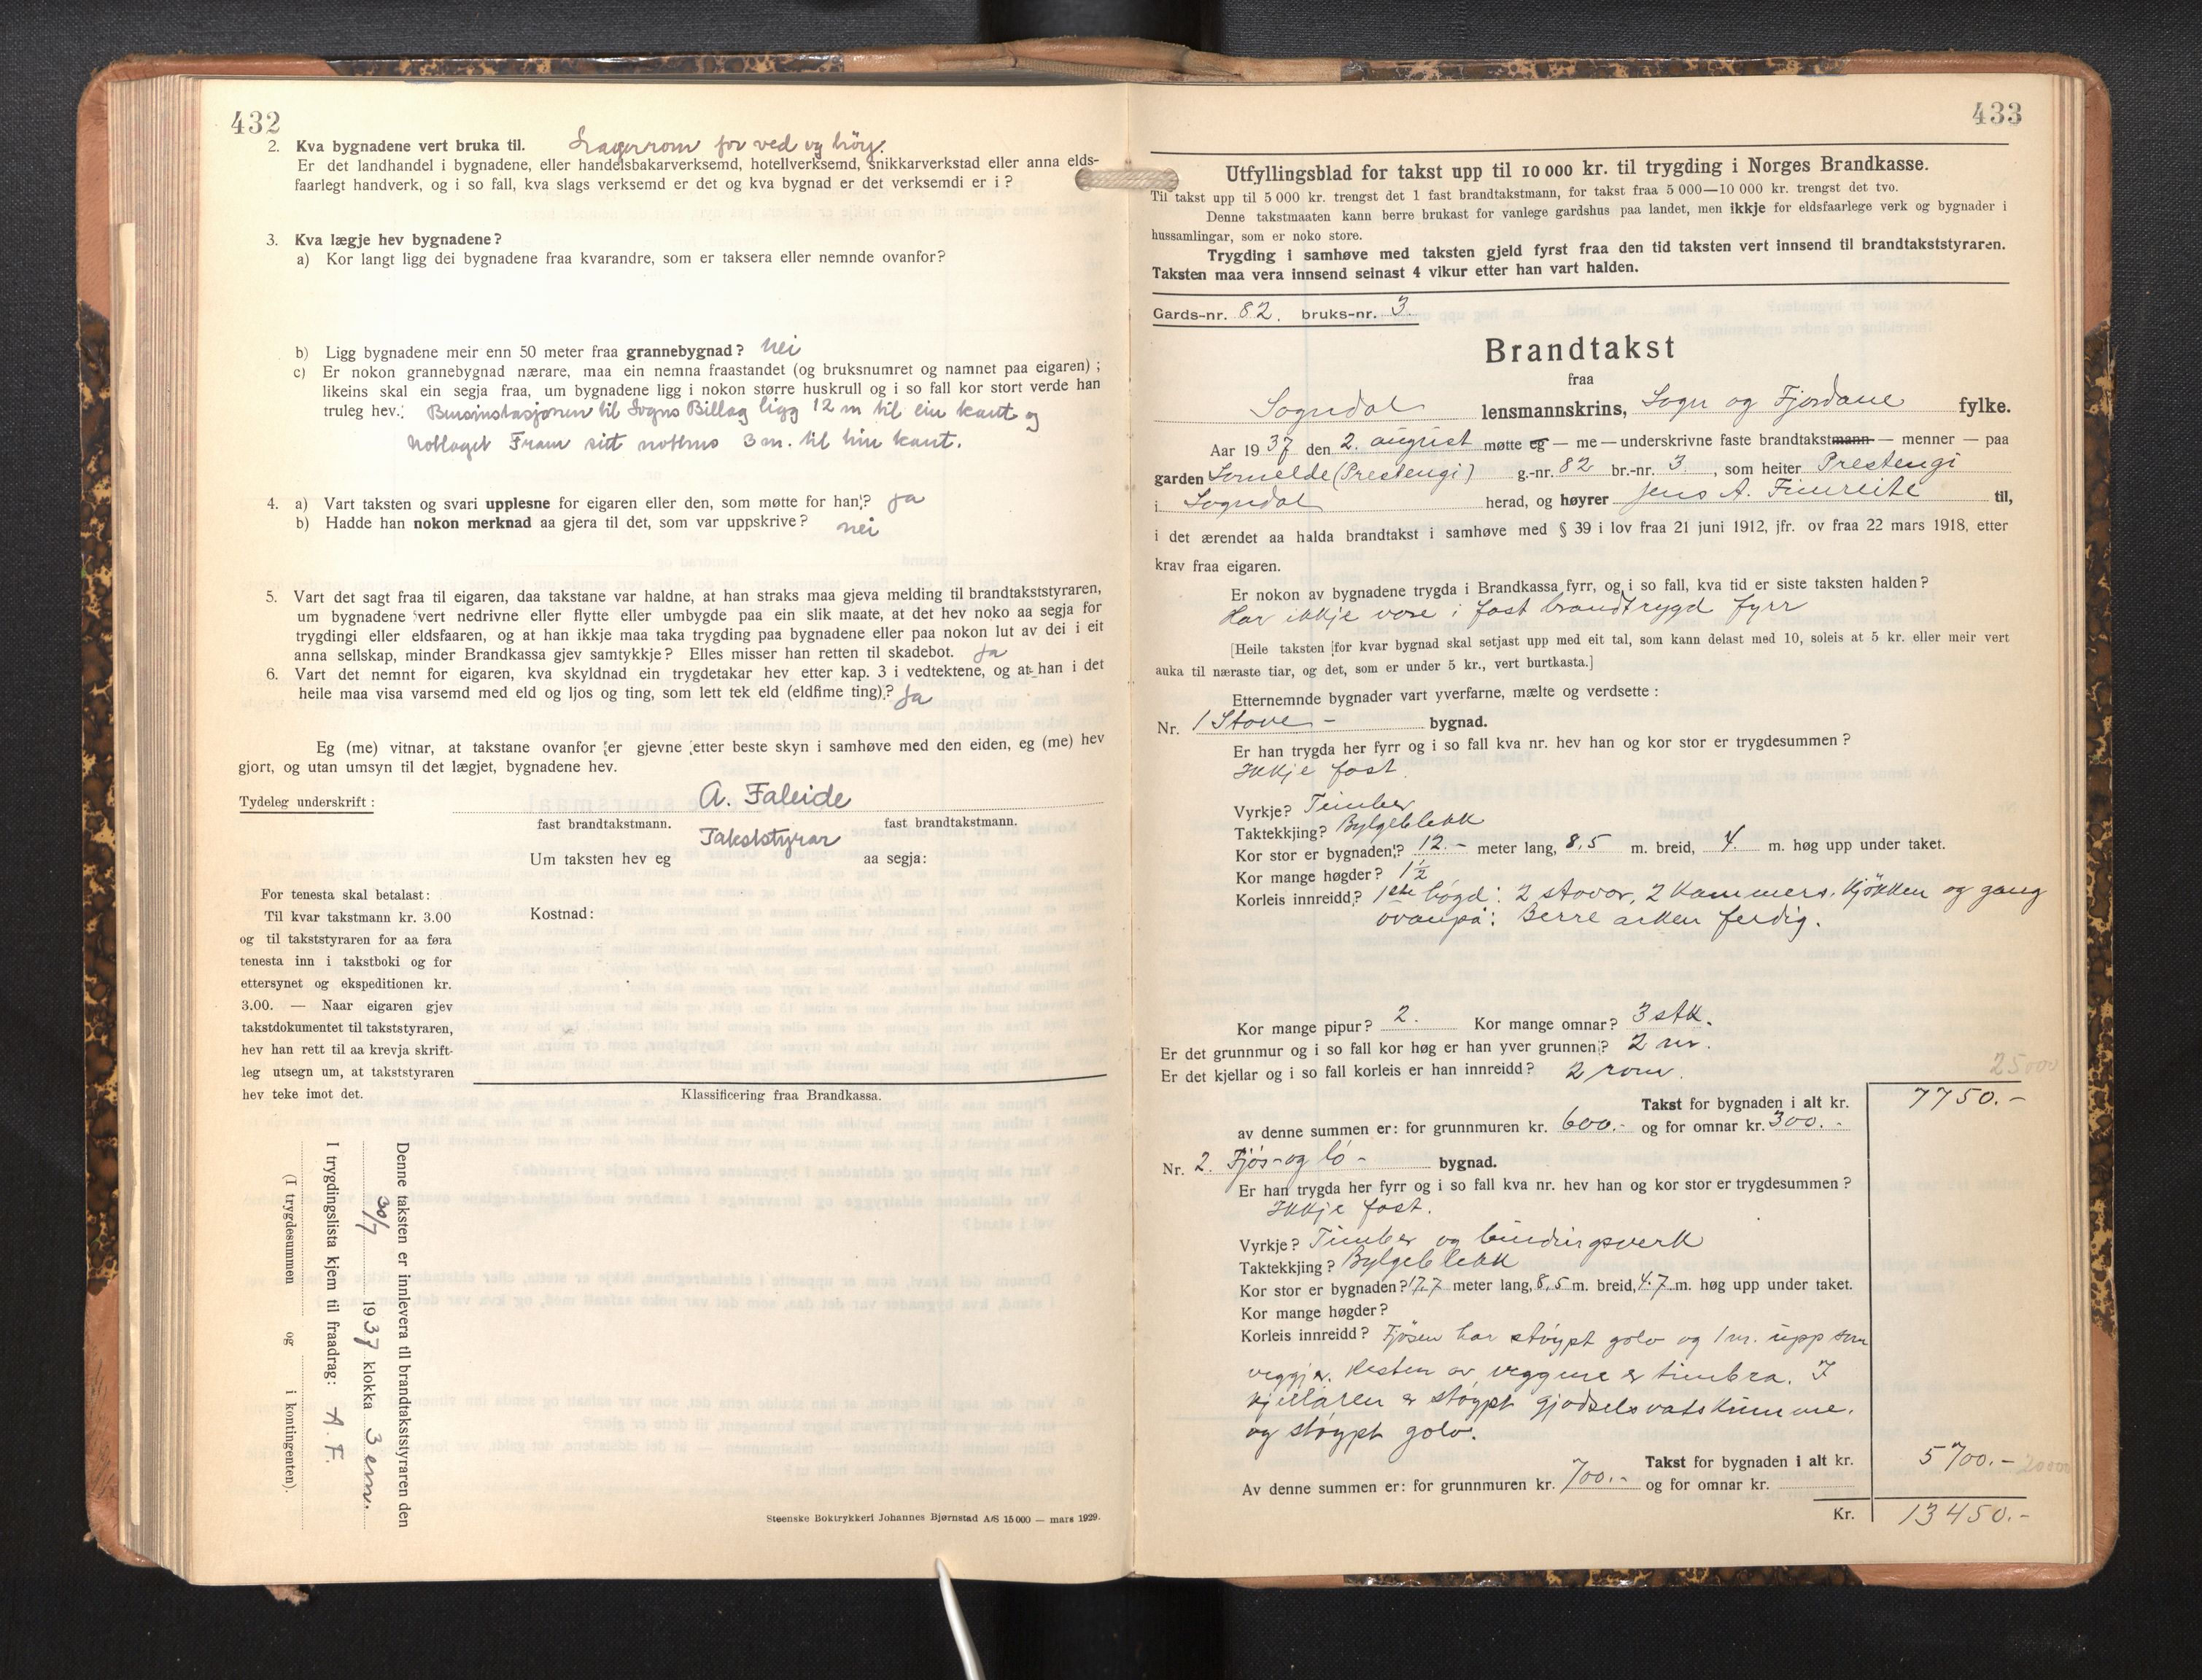 432
2. Kva bygnadene vert bruka til. Lagerrom for ved og höy.
Er det landhandel i bygnadene, eller handelsbakarverksemd, hotellverksemd, snikkarverkstad eller anna elds-
faarlegt handverk, og i so fall, kva slags verksemd er det og kva bygnad er det verksemdi er i?
3. Kva lægje hev bygnadene?
a) Kor langt ligg dei bygnadene fraa kvarandre, som er taksera eller nemnde ovanfor?
b) Ligg bygnadene meir enn 50 meter fraa grannebygnad? nei
c) Er nokon grannebygnad nærare, maa ein nemna fraastandet (og bruksnumret og namnet paa eigaren);
likeins skal ein segja fraa, um bygnadene ligg i nokon større huskrull og i so fall kor stort verde han
truleg hev. Bensinstasjonen til Sogns Billag ligg 12 m til ein kant og
Notlaget Fram sitt nothus 3 m. til hin kant.
4. a) Vart taksten og svari upplesne for eigaren eller den, som møtte for han? ja
b) Hadde han nokon merknad aa gjera til det, som var uppskrive? nei
5. Vart det sagt fraa til eigaren, daa takstane var haldne, at han straks maa gjeva melding til brandtakststyraren,
um bygnadene vert nedrivne eller flytte eller umbygde paa ein slik maate, at det hev noko aa segja for
trygdingi eller eldsfaaren, og at han ikkje maa taka trygding paa bygnadene eller paa nokon lut av dei i eit
anna sellskap, minder Brandkassa gjev samtykkje? Elles misser han retten til skadebot. ja
6. Vart det nemnt for eigaren, kva skyldnad ein trygdetakar hev etter kap. 3 i vedtektene, og at han i det
heile maa visa varsemd med eld og ljos og ting, som lett tek eld (eldfime ting)? Ja
Eg (me) vitnar, at takstane ovanfor er gjevne etter beste skyn i samhøve med den eiden, eg (me) hev
gjort, og utan umsyn til det lægjet, bygnadene hev.
Tydeleg underskrift: A. Faleide
fast brandtakstmann. fast brandtakstmann.
Takststyrar
Um taksten hev eg aa segja:
For tenesta skal betalast:
Til kvar takstmann kr. 3.00
og til takststyraren for aa føra
tenesta inn i takstboki og for
ettersynet og ekspeditionen kr.
3.00. — Naar eigaren gjev
takstdokumentet til takststyraren,
hev han rett til aa krevja skrift-
leg utsegn um, at takststyraren
hev teke imot det.
Kostnad:
Klassificering fraa Brandkassa.
Denne taksten er innlevera til brandtakststyraren den
30/7 1937 klokka 3 em.
I trygdingslista kjem til fraadrag: A. F.
(I trygdesummen og i kontingenten).
Steenske Boktrykkeri Johannes Bjørnstad A/S 15000 — mars 1929.
433
Utfyllingsblad for takst upp til 10 000 kr. til trygding i Norges Brandkasse.
Til takst upp til 5 000 kr. trengst det 1 fast brandtakstmann, for takst fraa 5 000—10 000 kr. trengst det tvo.
Denne takstmaaten kann berre brukast for vanlege gardshus paa landet, men ikkje for eldsfaarlege verk og bygnader i
hussamlingar, som er noko store.
Trygding i samhøve med taksten gjeld fyrst fraa den tid taksten vert innsend til brandtakststyraren.
Taksten maa vera innsend seinast 4 vikur etter han vart halden.
Gards-nr. 82. bruks-nr. 3.
Brandtakst
fraa
Sogndal lensmannskrins, Sogn og Fjordane fylke.
Aar 1937 den 2. august møtte eg — me — underskrivne faste brandtakstmann — menner — paa
garden Somelde (Prestengi) g.-nr. 82 br.-nr. 3, som heiter Prestengi
i Sogndal herad, og høyrer Jens A. Fimreite til,
i det ærendet aa halda brandtakst i samhøve med § 39 i lov fraa 21 juni 1912, jfr. ov fraa 22 mars 1918, etter
krav fraa eigaren.
Er nokon av bygnadene trygda i Brandkassa fyrr, og i so fall, kva tid er siste taksten halden?
Har ikkje vore i fast brandtrygd fyrr
[Heile taksten for kvar bygnad skal setjast upp med eit tal, som kann delast med 10, soleis at 5 kr. eller meir vert
auka til næraste tiar, og det, som er under 5 kr., vert burtkasta.]
Etternemnde bygnader vart yverfarne, mælte og verdsette:
Nr. 1 Stove - bygnad.
Er han trygda her fyrr og i so fall kva nr. hev han og kor stor er trygdesummen?
Ikkje fast.
Vyrkje? Timber
Taktekkjing? Bylgeblekk
Kor stor er bygnaden? 12.- meter lang, 8,5 m. breid, 4. m. høg upp under taket.
Kor mange høgder? 1½
Korleis innreidd? 1ste högd: 2 stovor, 2 Kammers, Kjökken og gang
ovanpå: Berre arken ferdig.
Kor mange pipur? 2. Kor mange omnar? 3 stk.
Er det grunnmur og i so fall kor høg er han yver grunnen? 2 m.
Er det kjellar og i so fall korleis er han innreidd? 2 rom.
25000
Takst for bygnaden i alt kr. 7750.-
av denne summen er: for grunnmuren kr. 600.- og for omnar kr. 300.-
Nr. 2. Fjös- og lö- bygnad.
Er han trygda her fyrr og i so fall kva nr. hev han og kor stor er trygdesummen?
Ikkje fast.
Vyrkje? Timber og bindingsverk
Taktekkjing? Bylgeblekk
Kor stor er bygnaden? 17.7 meter lang, 8,5 m. breid, 4.7 m. høg upp under taket.
Kor mange høgder?
Korleis innreidd? Fjösen har stöypt golv og 1 m. upp som
veggje. Resten av veggene er timbra. I
kjellaren er stöypt gjödselsvatskumme.
og stöypt golv.
Takst for bygnaden i alt kr. 5700.- 20000
Av denne summen er: for grunnmuren kr. 700.- og for omnar kr.
Kr. 13450.-